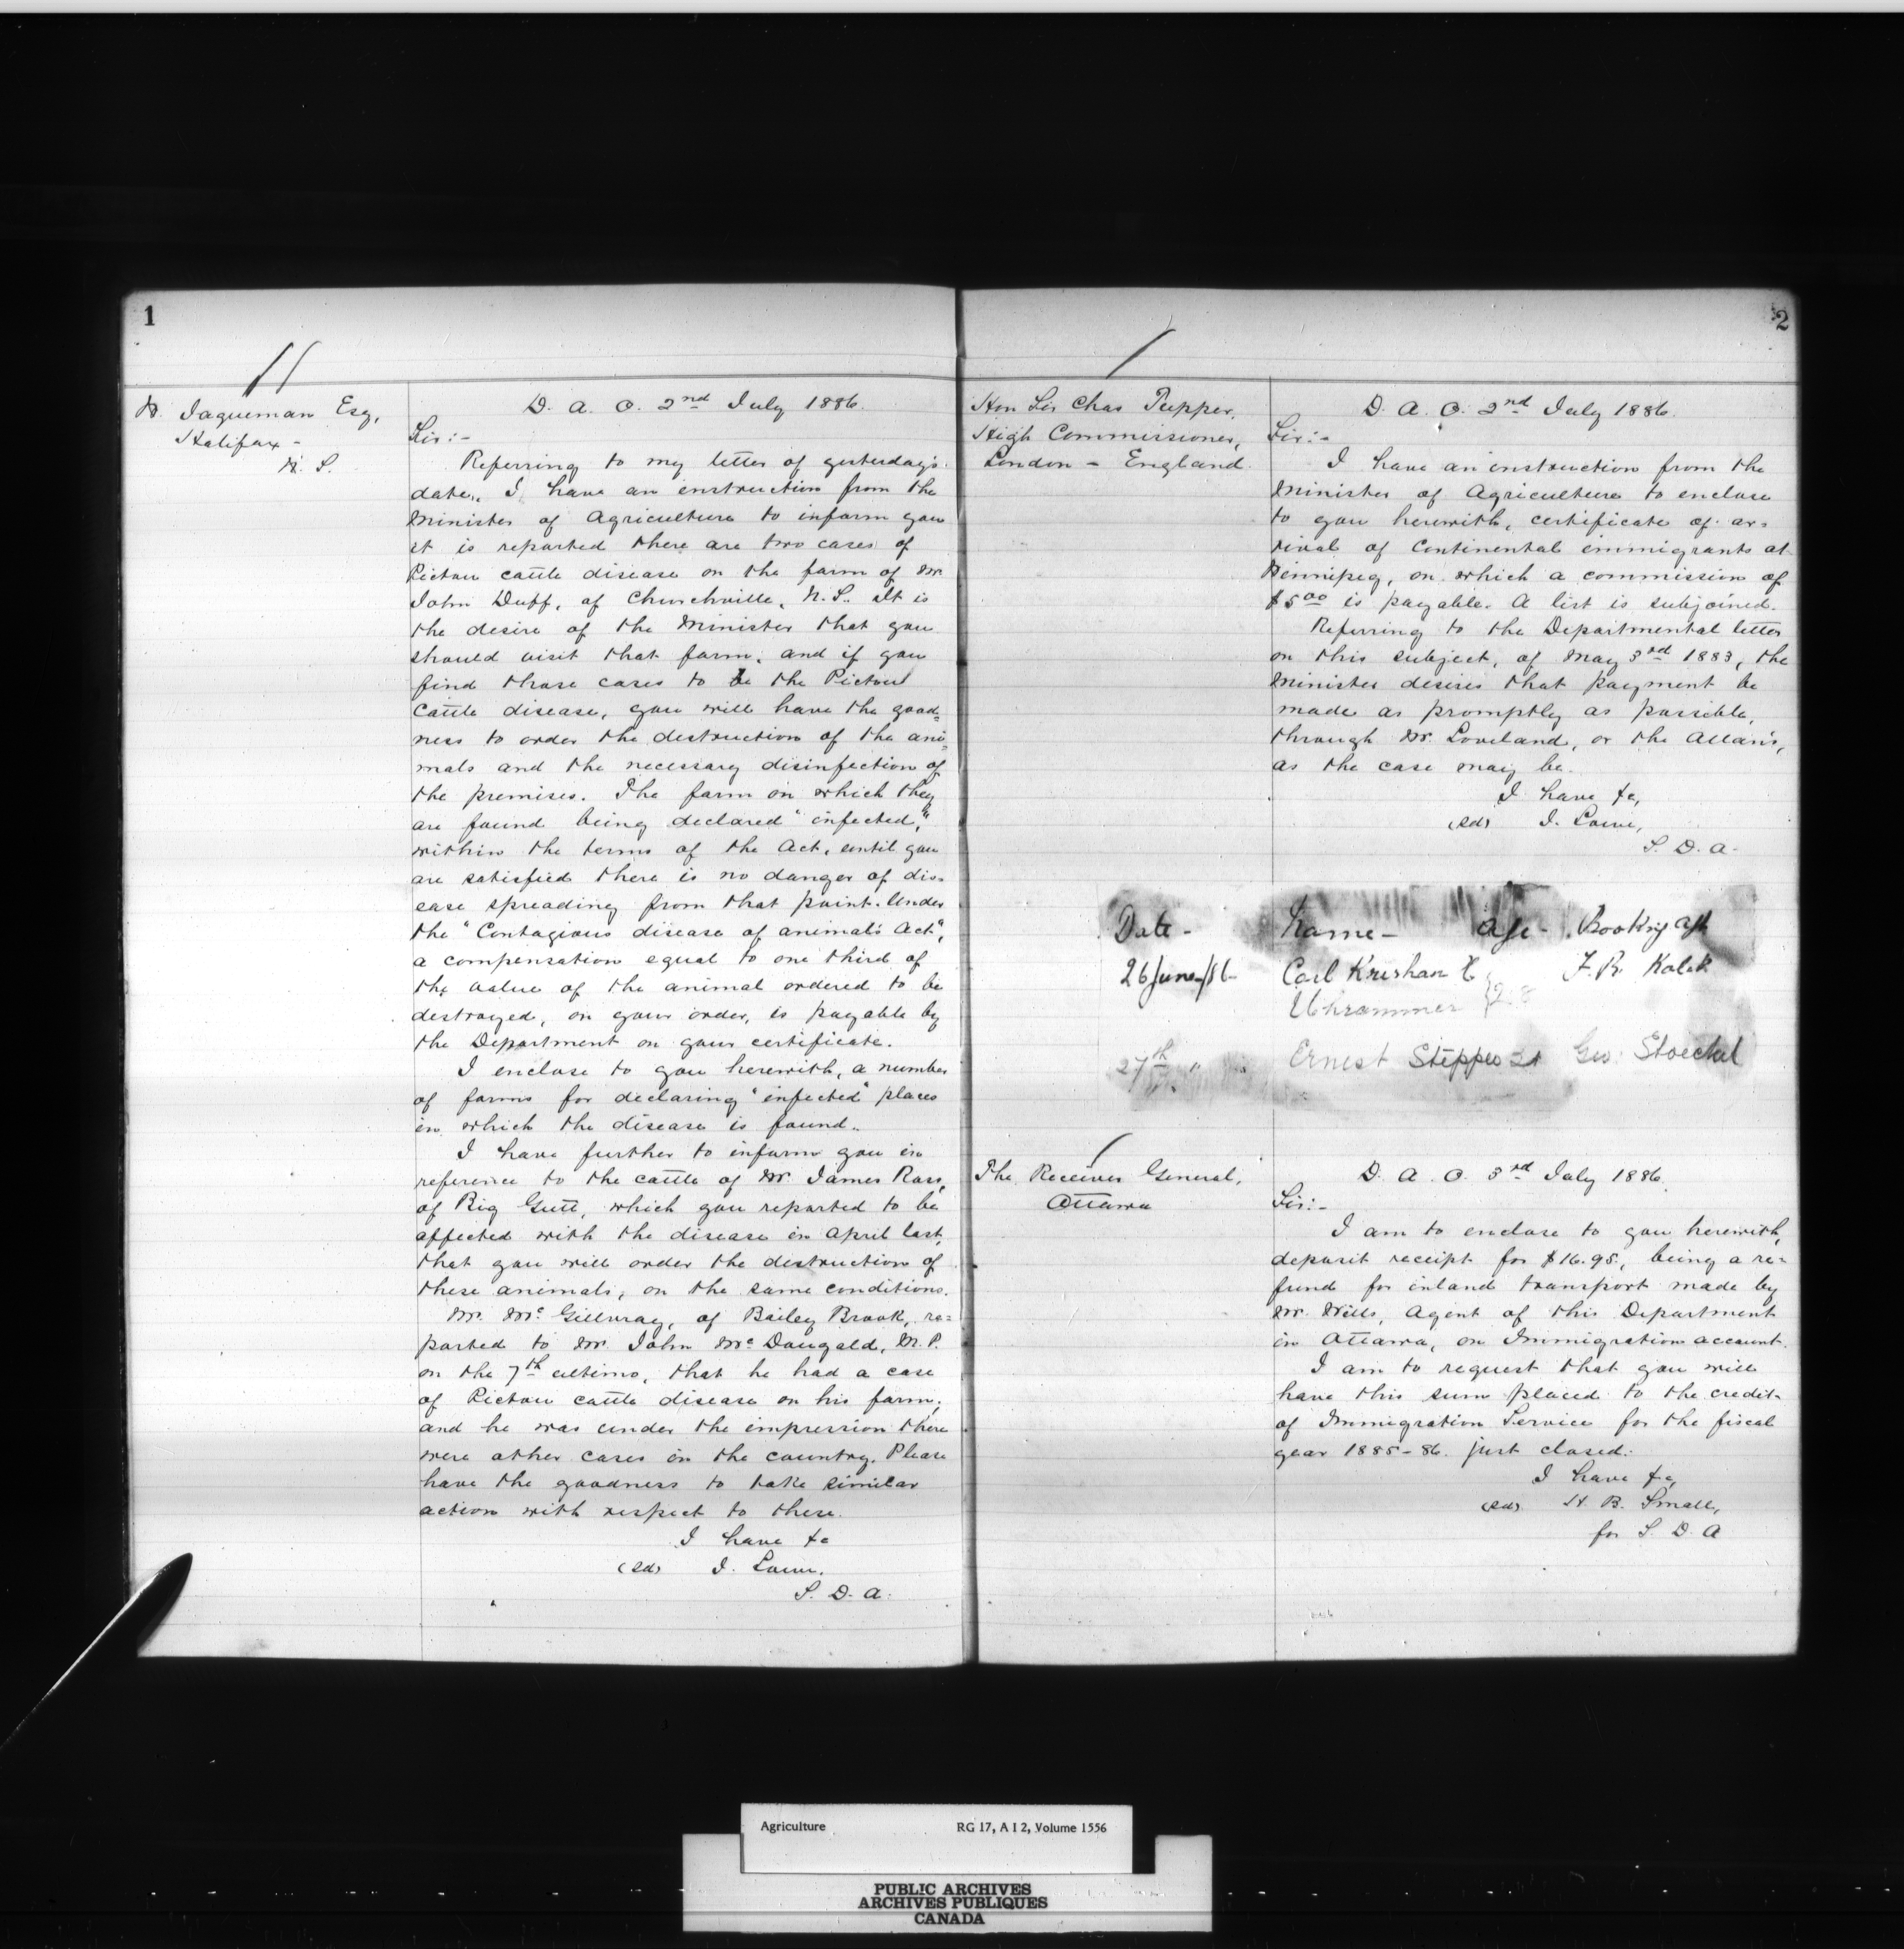 1
W. Jaqueman Esq,
Halifax -
N. S.
D. A. O. 2nd July 1886.
Sir:-
Referring to my letter of yesterday's
date, I have an instruction from the
Minister of Agriculture to inform you
it is reported there are two cases of
Pictou cattle disease on the farm of Mr.
John Duff, of Churchville, N.S. It is
the desire of the Minister that you
should visit that farm, and if you
find those cases to be the Pictou
Cattle disease, you will have the good=
ness to order the destruction of the ani=
mals and the necessary disinfection of
the premises. The farm on which they
are found being declared "infected,"
within the terms of the Act, until you
are satisfied there is no danger of dis=
ease spreading from that point. Under
the "Contagious disease of animals Act",
a compensation equal to one third of
the value of the animal ordered to be
destroyed, on your order, is payable by
the Department on your certificate.
I enclose to you herewith, a number
of forms for declaring "infected" places
in which the disease is found.
I have further to inform you in
reference to the cattle of Mr. James Ross,
of Big Gutt, which you reported to be
affected with the disease in April last,
that you will order the destruction of
these animals, on the same conditions.
Mr. Mc Gillvray, of Bailey Brook, re=
ported to Mr John Mc Dougald, M.P.
on the 7th ultimo, that he had a case
of Pictou cattle disease on his farm,
and he was under the impression there
were other cases in the country. Please
have the goodness to take similar
action with respect to these.
I have &c
(sd) J. Lowe.
S. D. A.
2
Hon Sir Chas Tupper,
High Commissioner,
London - England.
D. A. O. 2nd July 1886.
Sir:-
I have an instruction from the
Minister of Agriculture to enclose
to you herewith, certificate of ar=
rival of Continental immigrants at
Winnipeg, on which a commission of
$5.00 is payable. A list is subjoined.
Referring to the Departmental letter
on this subject, of May 3rd 1883, the
Minister desires that payment be
made as promptly as possible,
through Mr. Loveland, or the Allan's,
as the case may be.
I have &c,
(sd) J. Lowe,
S. D. A.
Date - Name - Age - Booking Agt
26 June/86 Carl Krishan F. R. Kolek
27th " Ernest Steppes 21 Geo. Stoeckel
The Receiver General,
Ottawa
D. A. O. 3rd July 1886.
Sir:-
I am to enclose to you herewith,
deposit receipt for $16.95, being a re=
fund for inland transport made by
Mr. Wills, Agent of this Department
in Ottawa, on Immigration account.
I am to request that you will
have this sum placed to the credit
of Immigration Service for the fiscal
year 1885-86. just closed.
I have &c,
(sd) H. B. Small,
for S. D. A
Agriculture RG 17, A I 2, Volume 1556
PUBLIC ARCHIVES
ARCHIVES PUBLIQUES
CANADA